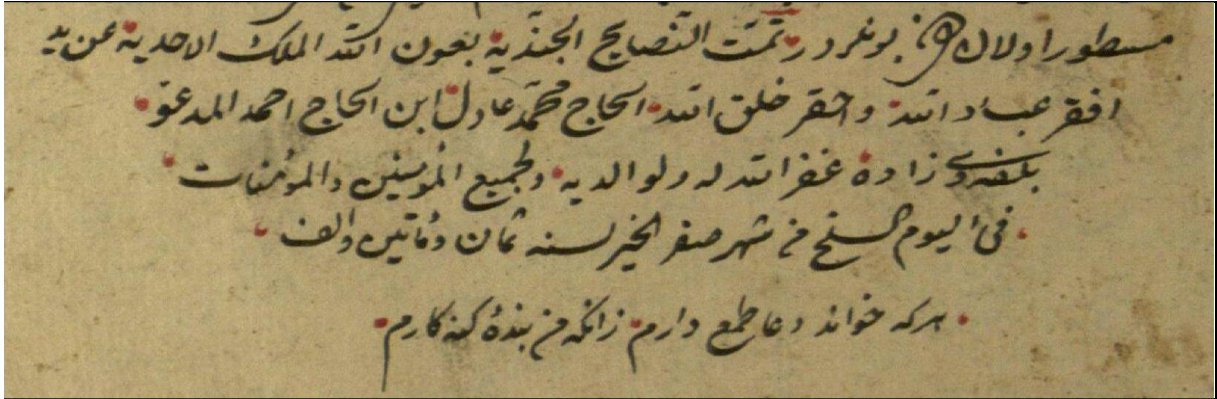 مسطور اولان بونلردر تمت النصايح الجندية بعون الله الملك الاحدية عن يد
افقر عباد الله واحقر خلق الله الحاج محمد عادل ابن الحاج احمد المدعو
زاده غفر الله له ولوالديه ولجميع المؤمنين والمؤمنات
فى اليوم السلخ من شهر صفر الخير لسنه ثمان ومأتين والف
هركه خواند دعا طمع دارم زانكه من بندهٔ كنه كارم